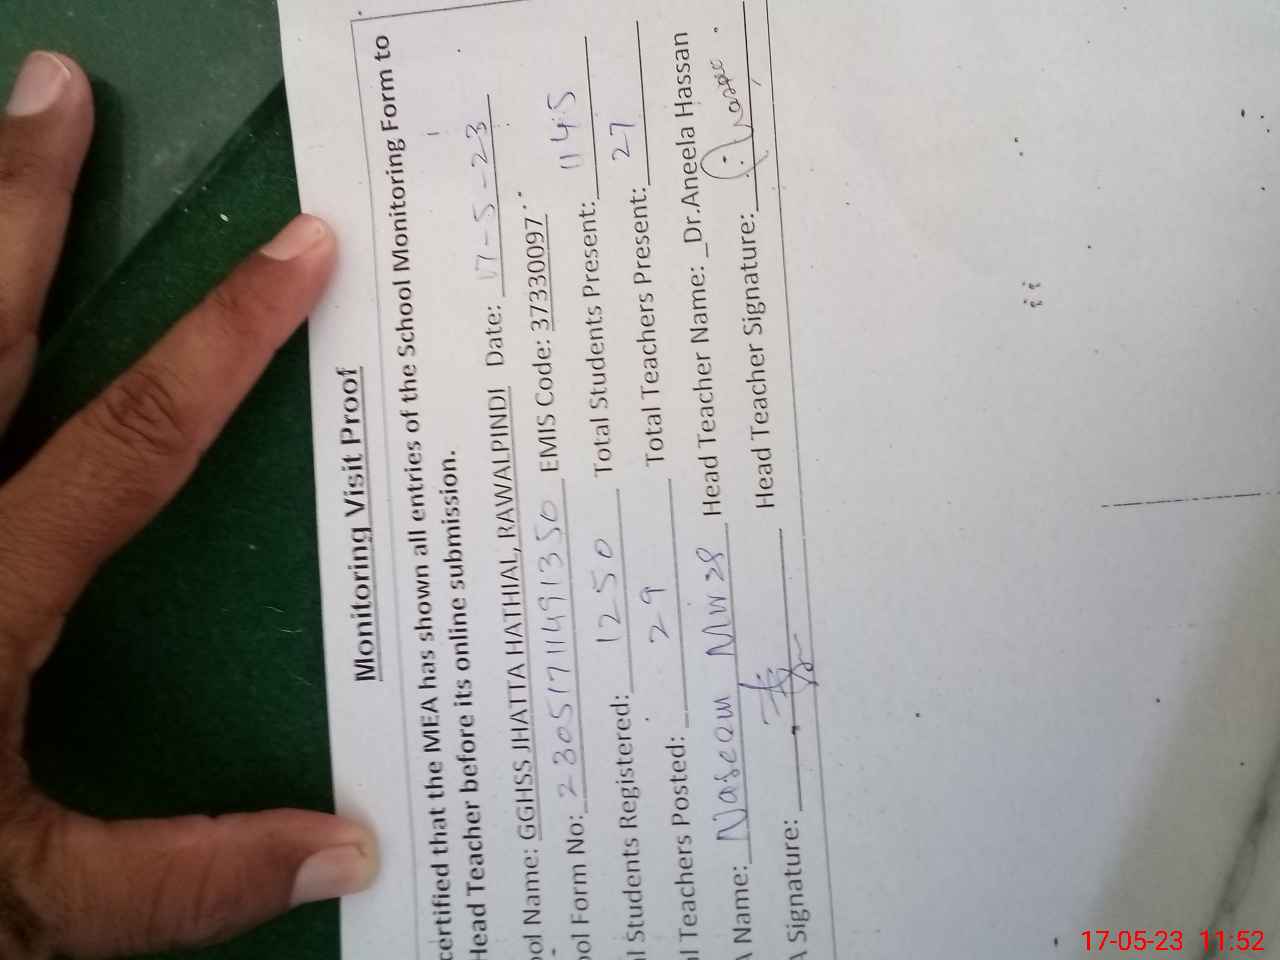 Monitoring Visit Proof
certified that the MEA has shown all entries of the School Monitoring Form to
Head Teacher before its online submission.
ool Name: GGHSS JHATTA HATHIAL, RAWALPINDI Date: 17-5-23
ool Form No: EMIS Code: 37330097
l Students Registered: 1250 Total Students Present: 1145
l Teachers Posted: 29 Total Teachers Present: 27
A Name: Naseam Head Teacher Name: _Dr.Aneela Hassan
A Signature: Head Teacher Signature:
17-05-23 11:52